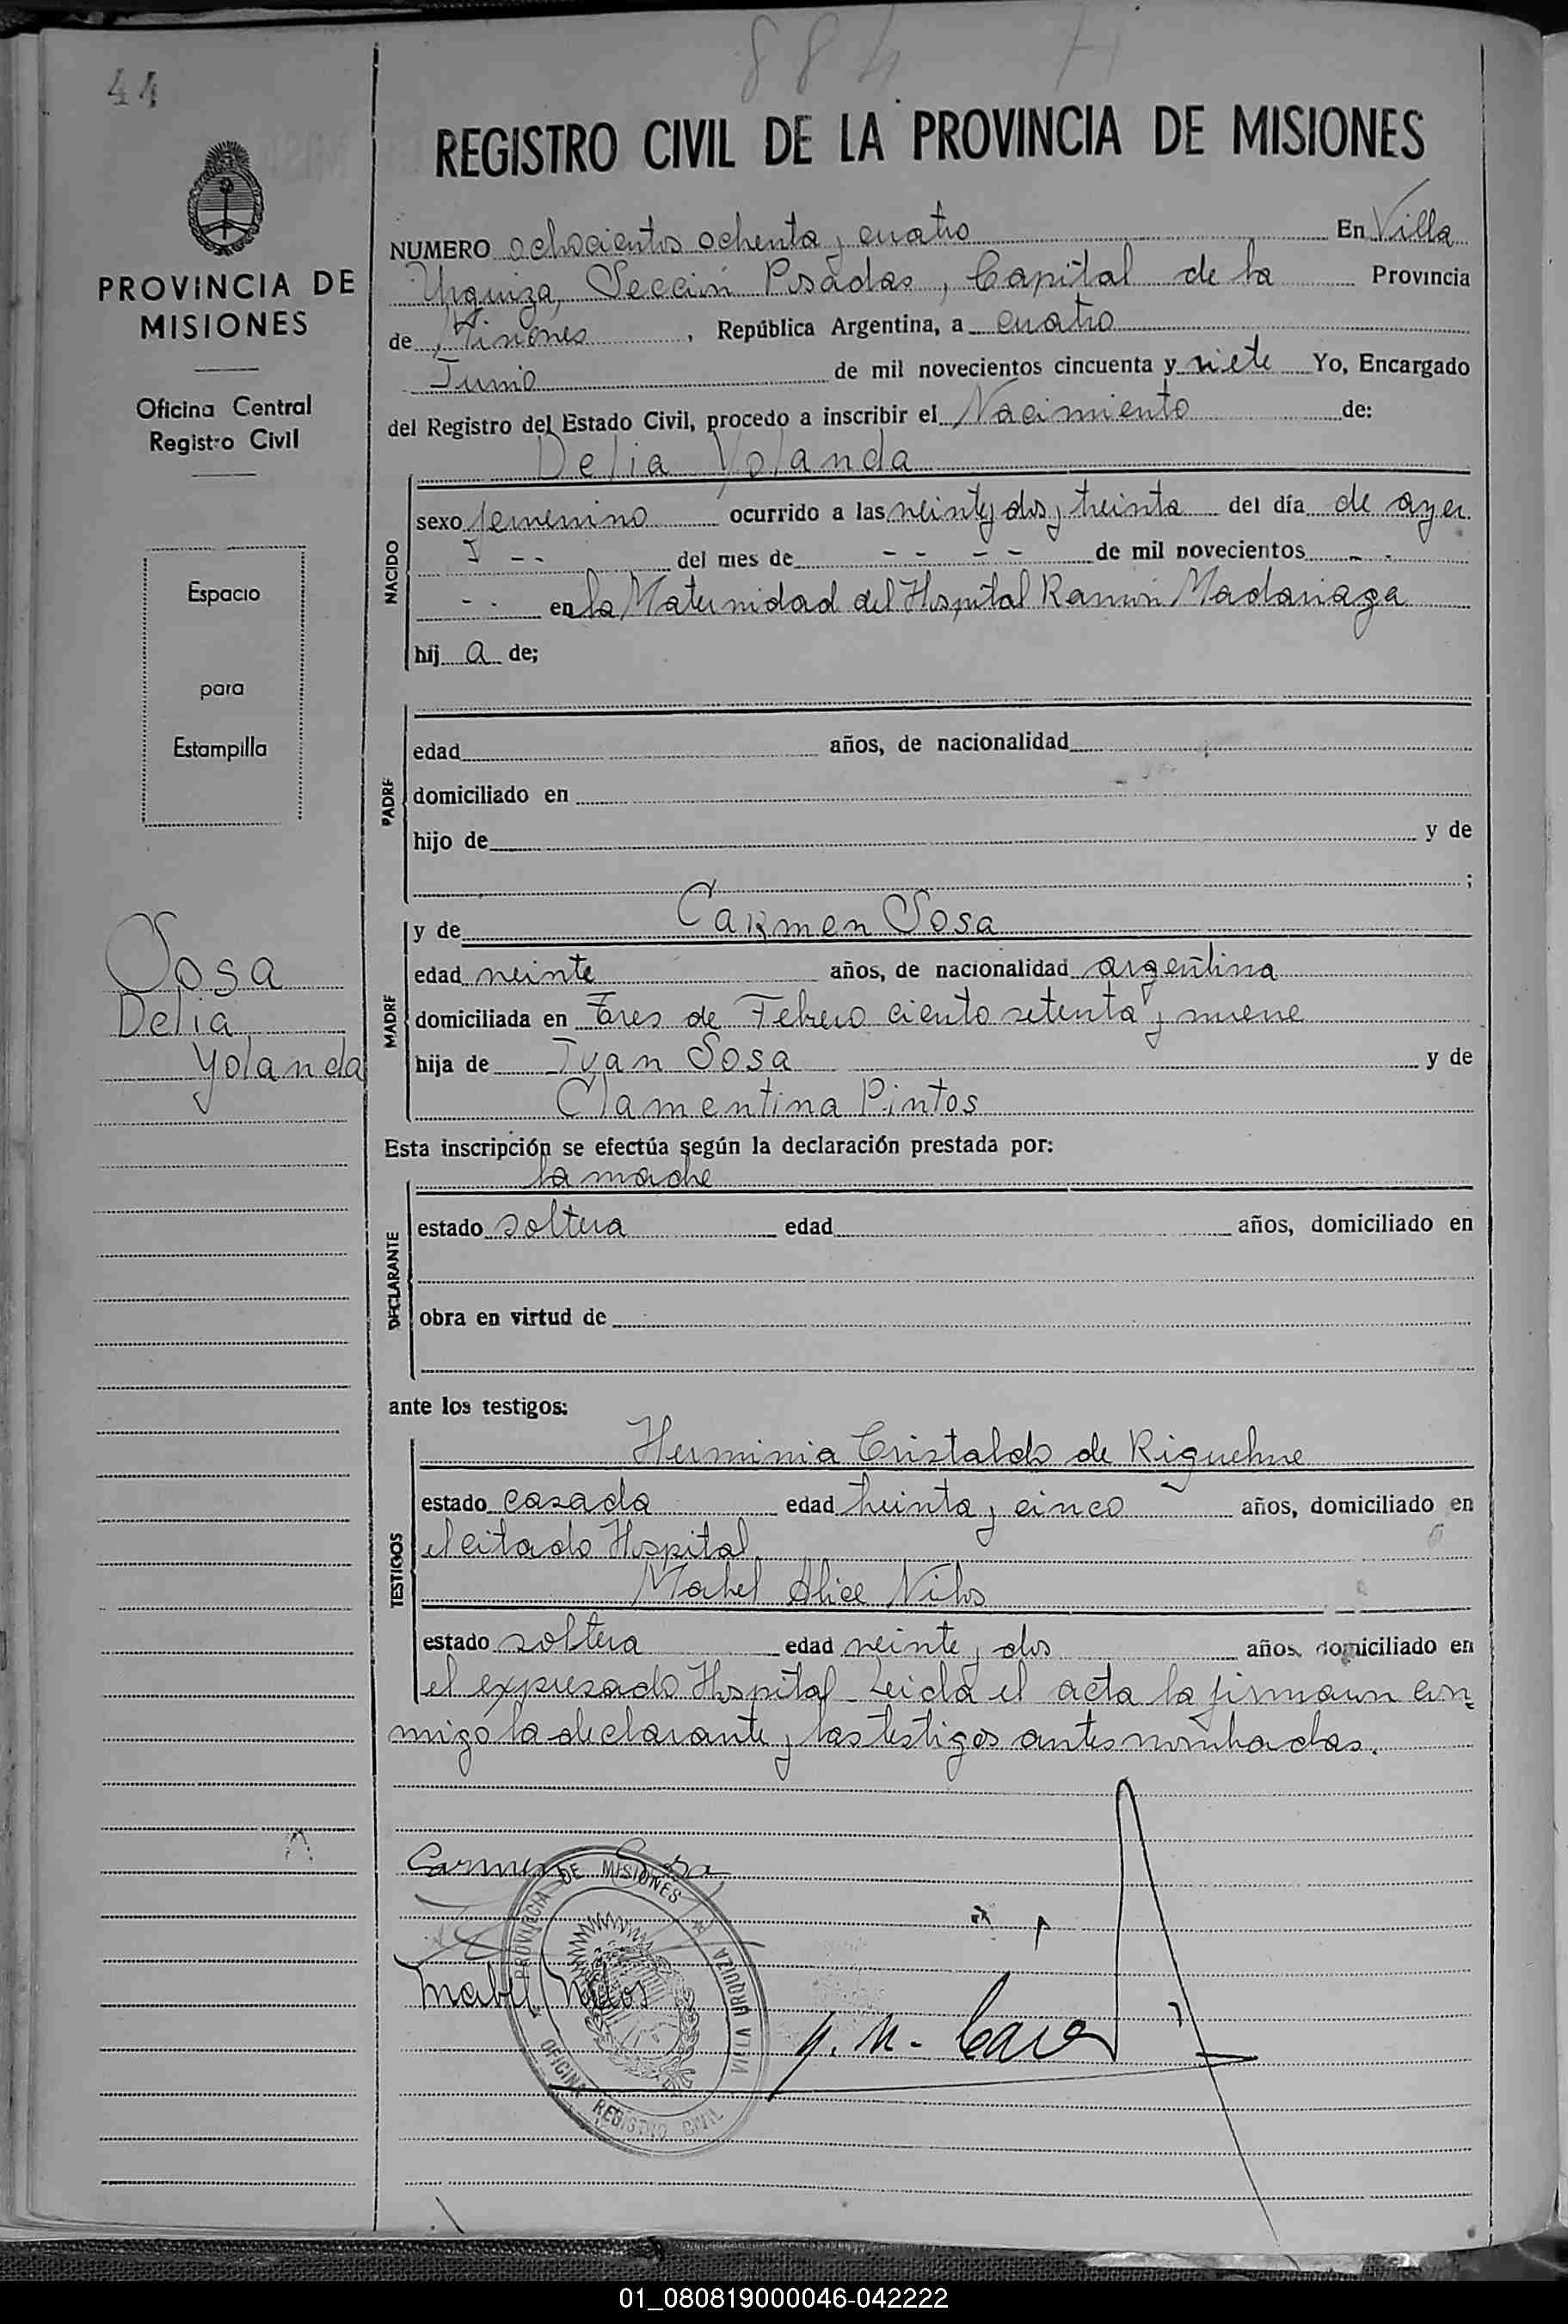 884
44
REGISTRO CIVIL DE LA PROVINCIA DE MISIONES
PROVINCIA DE
MISIONES
Oficina Central
Registro Civil
Espacio
para
Estampilla
Sosa
Delia
Yolanda
NUMERO ochocientos ochenta y cuatro En Villa
Urquiza, Sección Posadas, Capital de la Provincia
de Misiones, República Argentina, a cuatro
Junio de mil novecientos cincuenta y siete Yo, Encargado
del Registro del Estado Civil, procedo a inscribir el Nacimiento de:
Delia Yolanda
NACIDO
sexo femenino ocurrido a las veinte y dos y treinta del día de ayer
- - del mes de - - - - de mil novecientos - -
- - en la Maternidad del Hospital Ramón Madariaga
hij a de;
PADRE
edad años, de nacionalidad
domiciliado en
hijo de y de
;
MADRE
y de Carmen Sosa
edad veinte años, de nacionalidad argentina
domiciliada en Tres de Febrero ciento setenta y nueve
hija de Juan Sosa y de
Clamentina Pintos
Esta inscripción se efectúa según la declaración prestada por:
la madre
DECLARANTE
estado soltera edad años, domiciliado en
obra en virtud de
ante los testigos:
TESTIGOS
Herminia Cristaldo de
estado casada edad treinta y cinco años, domiciliado en
el citado Hospital
Mabel Alice Nilos
estado soltera edad veinte y dos años, domiciliado en
el expresado Hospital - Leida el acta la firmaron con
migo la declarante y las testigos antes nombradas.
Carmen Sosa
Mabel Nilos
PROVINCIA DE MISIONES
VILLA URQUIZA
OFICINA REGISTRO CIVIL
01_080819000046-042222